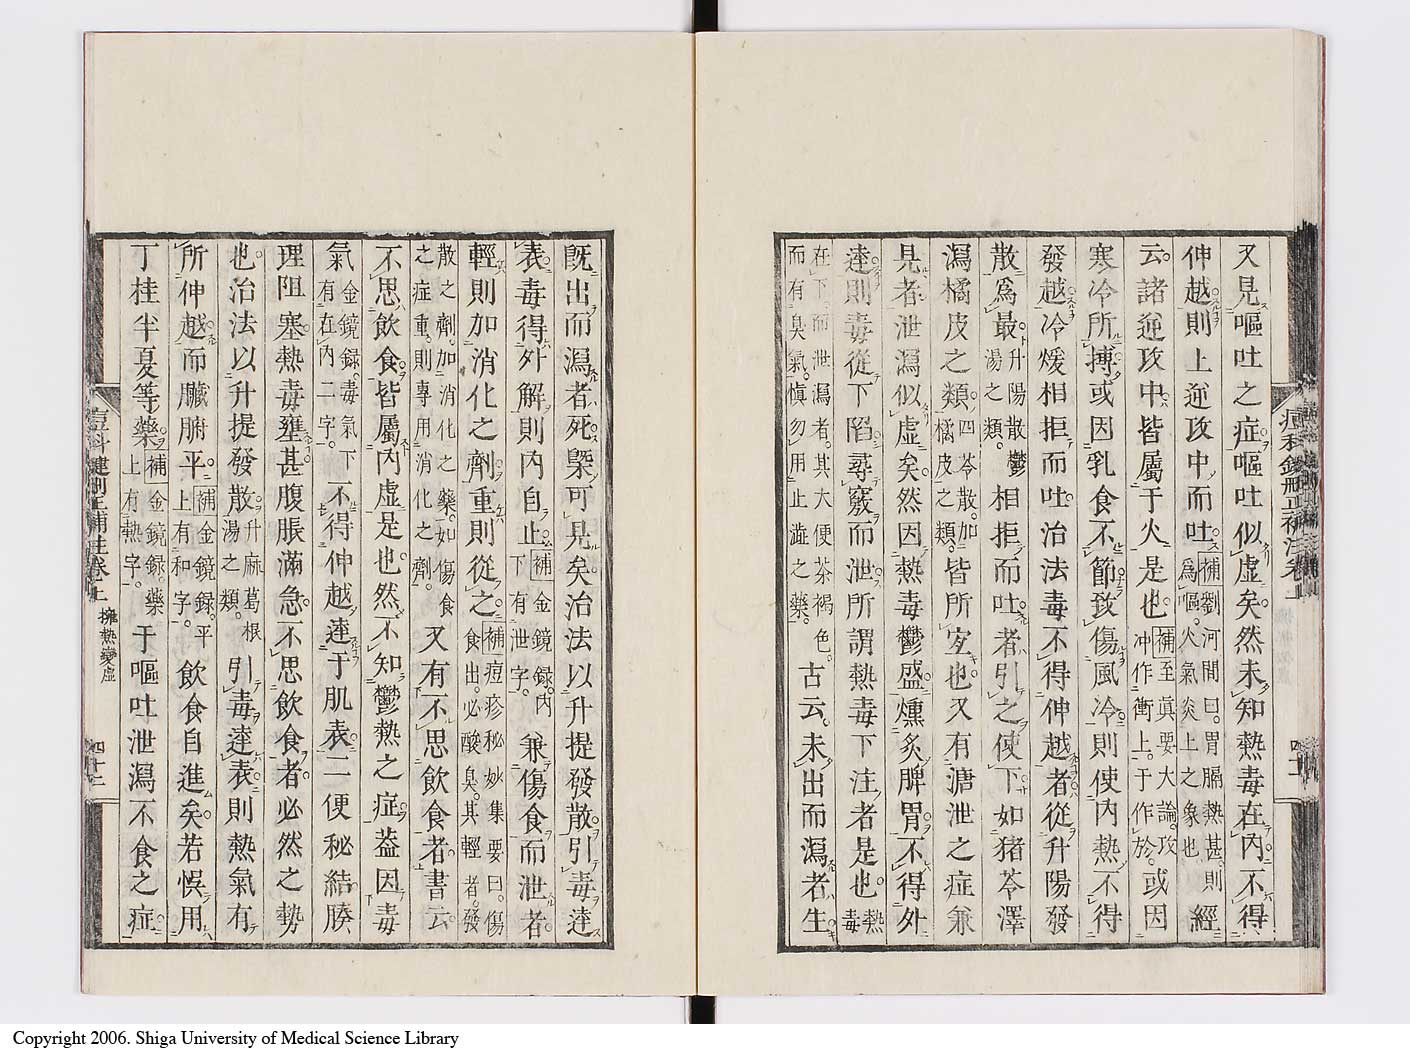 又見嘔吐之症嘔吐似虛矣然未知熱毒在內不得
伸越則上逆攻中而吐補劉河間曰胃膈熱甚則爲嘔火氣炎上之象也經
云諸逆攻中皆屬于火是也補至眞要大論攻冲作衝上于作於或因
寒冷所搏或因乳食不節致傷風冷則使內熱不得
發越冷煖相拒而吐治法毒不得伸越者從升陽發
散爲最升陽散鬱湯之類相拒而吐者引之使下如猪苓澤
瀉橘皮之類四苓散加橘皮之類皆所宐也又有溏泄之症兼
見者泄瀉似虛矣然因熱毒鬱盛燻炙脾胃不得外
達則毒從下陷尋竅而泄所謂熱毒下注者是也熱毒
在下而泄瀉者其大便茶褐色而有臭氣愼勿用止澁之藥古云未出而瀉者生
既出而瀉者死槩可見矣治法以升提發散引毒達
表毒得外解則內自止補金鏡錄內下有泄字兼傷食而泄者
輕則加消化之劑重則從之補痘疹秘妙集要曰傷食出必酸臭其輕者發
散之劑加消化之藥如傷食之症重則專用消化之劑又有不思飲食者書云
不思飲食皆屬內虛是也然不知鬱熱之症葢因毒
氣金鏡錄毒氣下有在內二字不得伸越達于肌表二便秘結腠
理阻塞熱毒壅甚腹脹滿急不思飲食者必然之勢
也治法以升提發散升麻葛根湯之類引毒達表則熱氣有
所伸越而臟腑平補金鏡錄平上有和字飲食自進矣若悞用
丁桂半夏等藥補金鏡錄藥上有熱字于嘔吐泄瀉不食之症
擁熱變虛
四十二
Copyright 2006. Shiga University of Medical Science Library